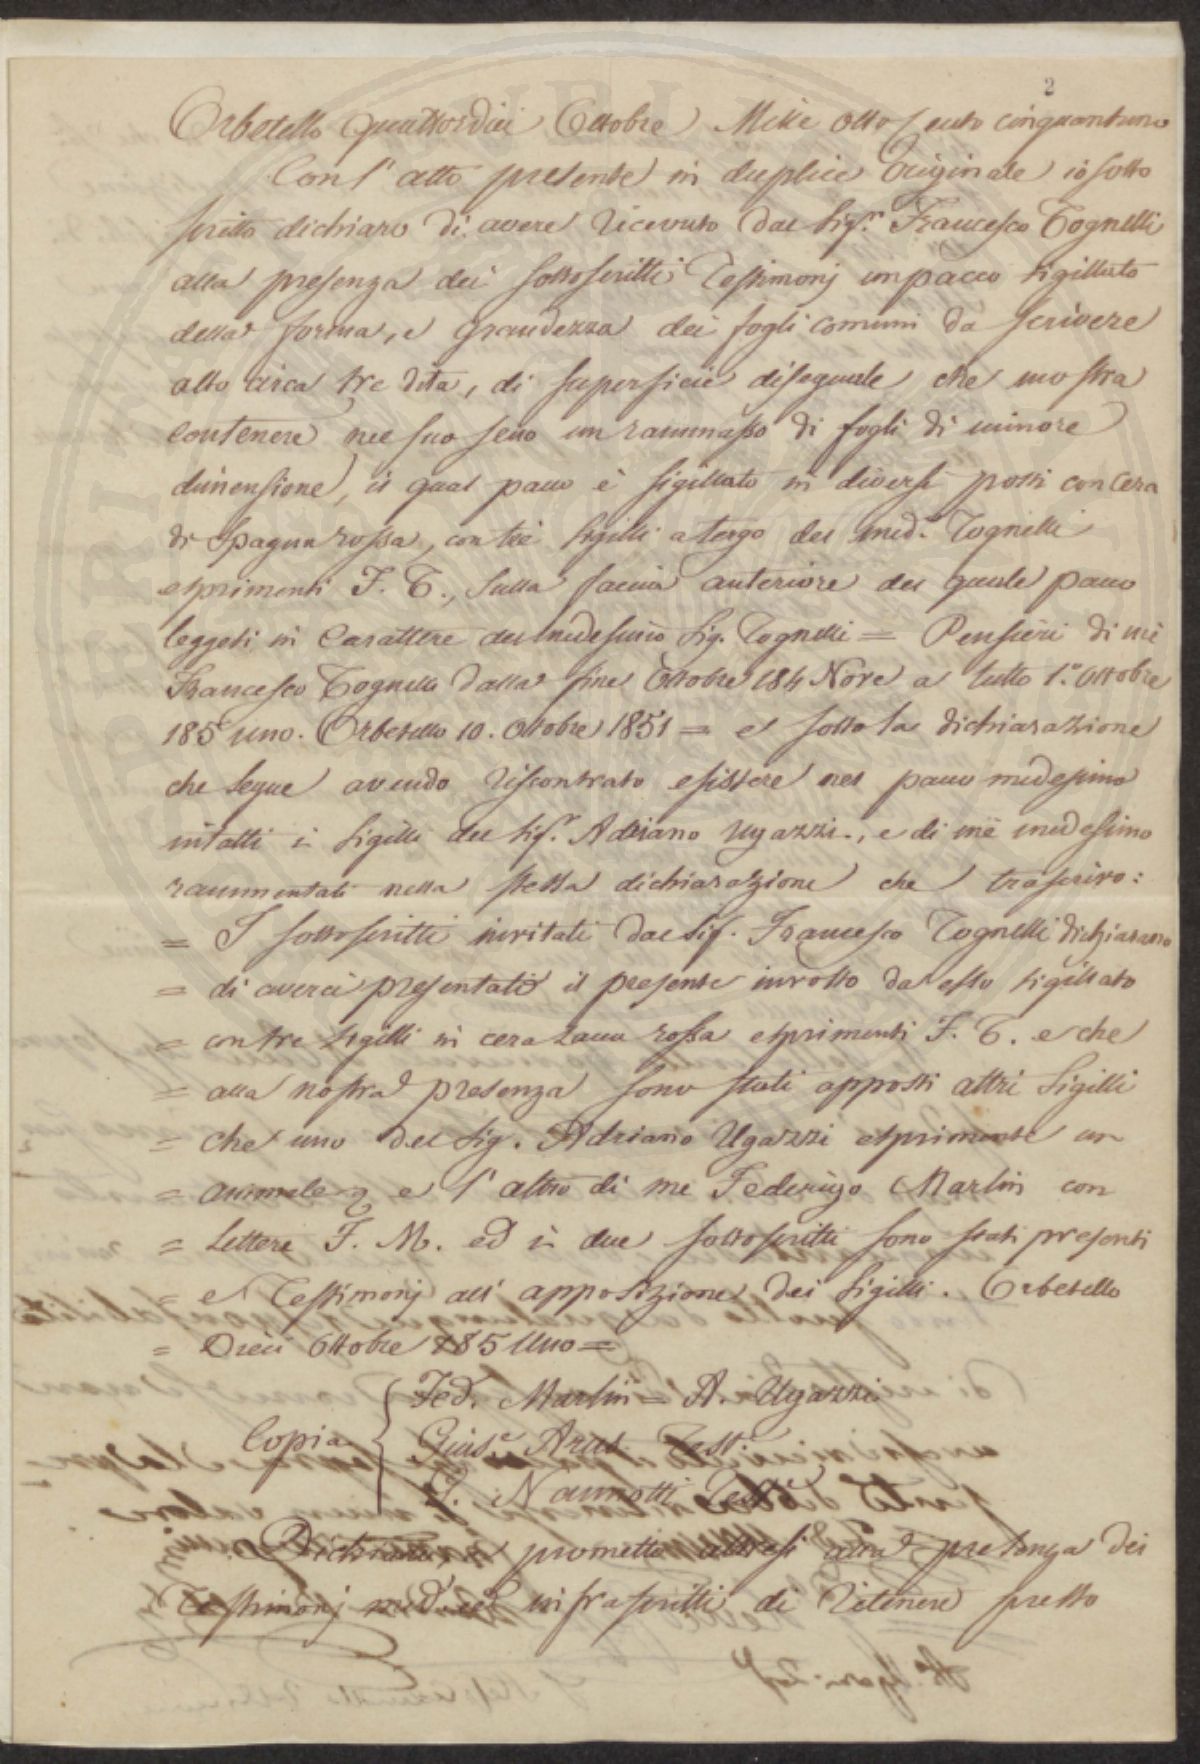 2
Orbetello quattordici Ottobre Mille otto cento cinquantuno
Con l' atto presente in duplice Originale io sotto
scritto dichiaro di avere ricevuto dal Sigr. Francesco Tognelli
alla presenza dei sottoscritti Testimonj un pacco sigillato
della forma, e grandezza dei fogli comuni da scrivere
alto circa tre dita, di superficie diseguale che mostra
contenere nel suo seno un rammasso di fogli di minore
dimensione, il qual pacco è sigillato in diversi posti con cera
di Spagna rossa, con tre sigilli a tergo del medo. Tognelli
esprimenti F. T., sulla faccia anteriore del quale pacco
leggesi in Carattere del medesimo Sig. Tognelli = Pensieri di me
Francesco Tognelli dalla fine Ottobre 184 Nove a tutto 1.º Ottobre
185 uno. Orbetello 10. Ottobre 1851 = e sotto la dichiarazione
che segue avendo riscontrato esistere nel pacco medesimo
intatti i sigilli del Sigr. Adriano Ugazzi., e di me medesimo
rammentati nella stessa dichiarazione che trascrivo:
= I sottoscritti invitati dal Sig. Francesco Tognelli dichiarano
= di averci presentato il presente involto da esso sigillato
= con tre sigilli in cera lacca rossa esprimenti F. T. e che
= alla nostra presenza sono stati apposti altri sigilli
= che uno del Sig. Adriano Ugazzi esprimente un
= animale e l' altro di me Federigo Marlin con
= Lettere F. M. ed i due sottoscritti sono stati presenti
= e Testimonj all' apposizione dei sigilli. Orbetello
= Dieci Ottobre 185 Uno =
Fed. Marlin = A. Ugazzi
Copia Giuse. Aras Testi.
Nannotti Teste
Dichiaro, e prometto altresì alla presenza dei
Testimonj med. infrascritti di ritenere presso